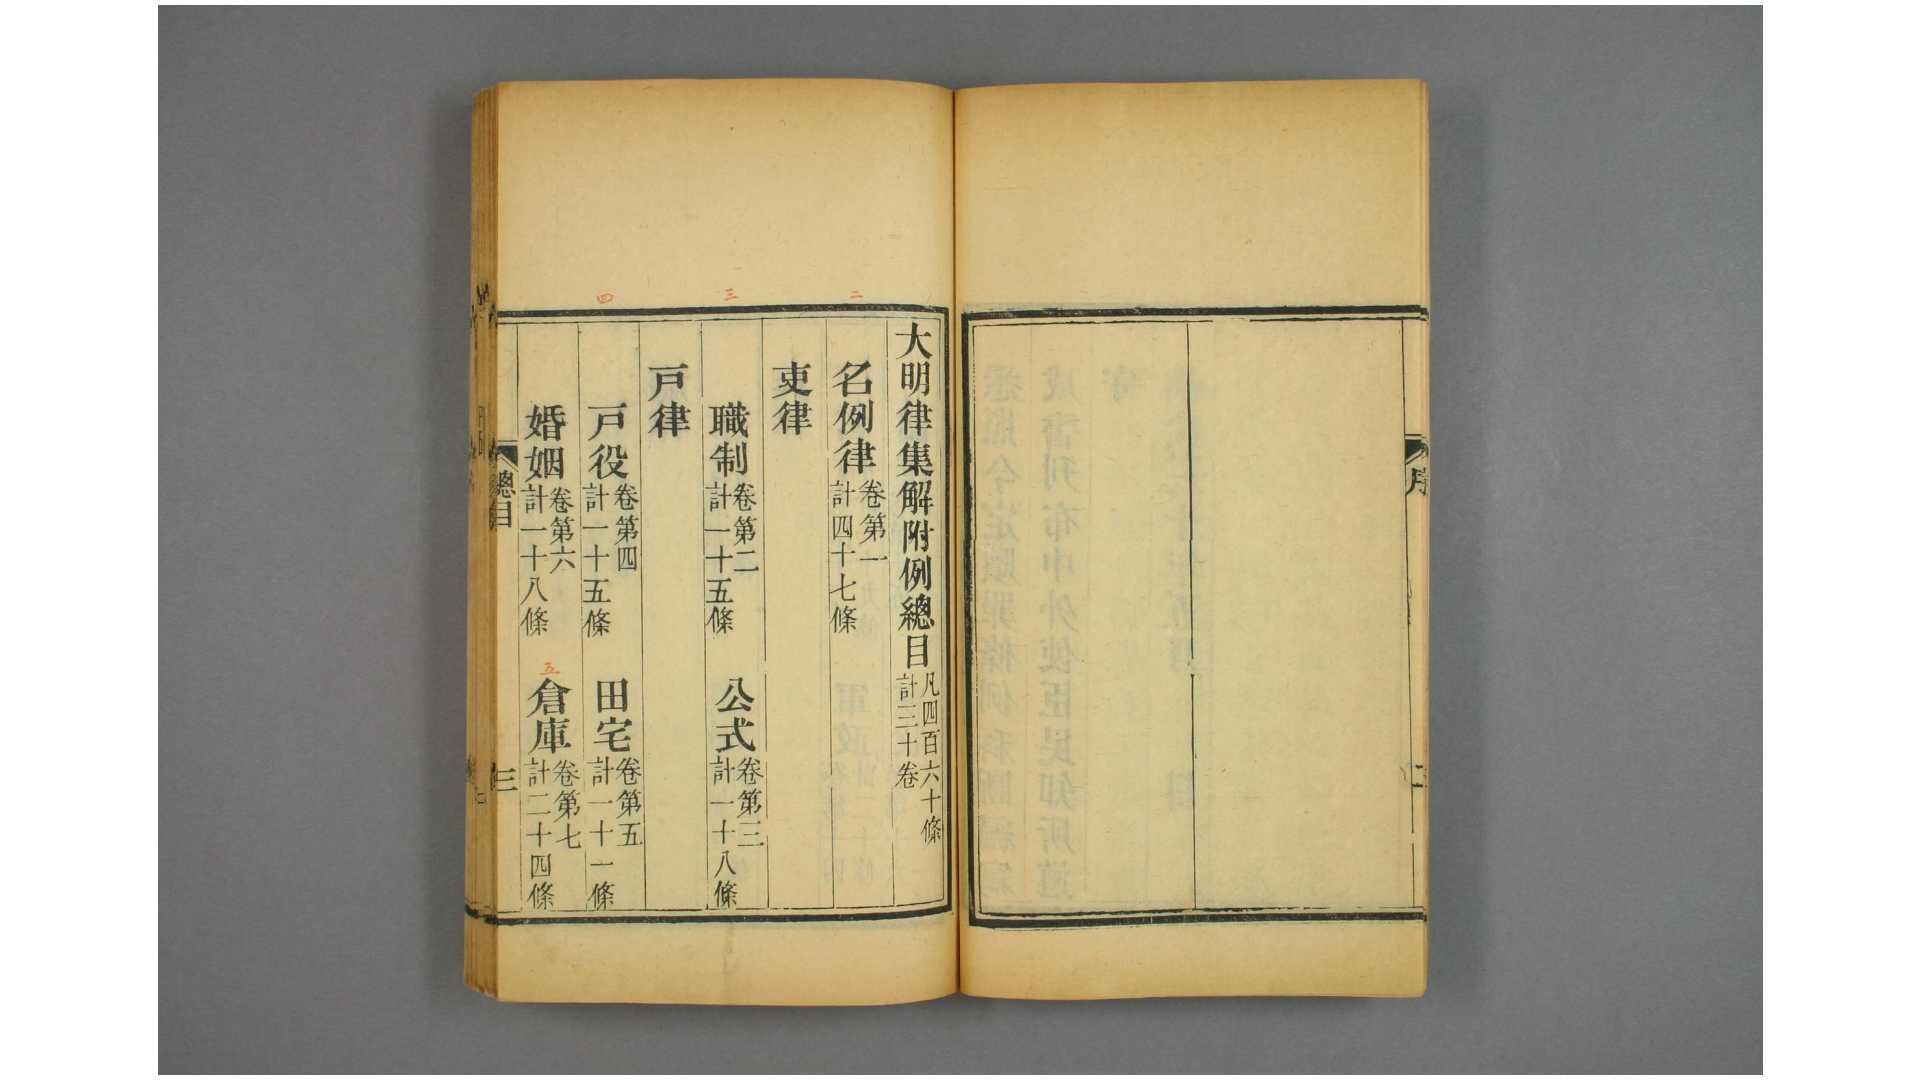 序
二
大明律集解附例總目凡四百六十條
計三十卷
名例律卷第一
計四十七條
吏律
職制卷第二
計一十五條
公式卷第三
計一十八條
戸律
戸役卷第四
計一十五條
田宅卷第五
計一十一條
婚姻卷第六
計一十八條
倉庫卷第七
計二十四條
總目
三
二
三
四
五